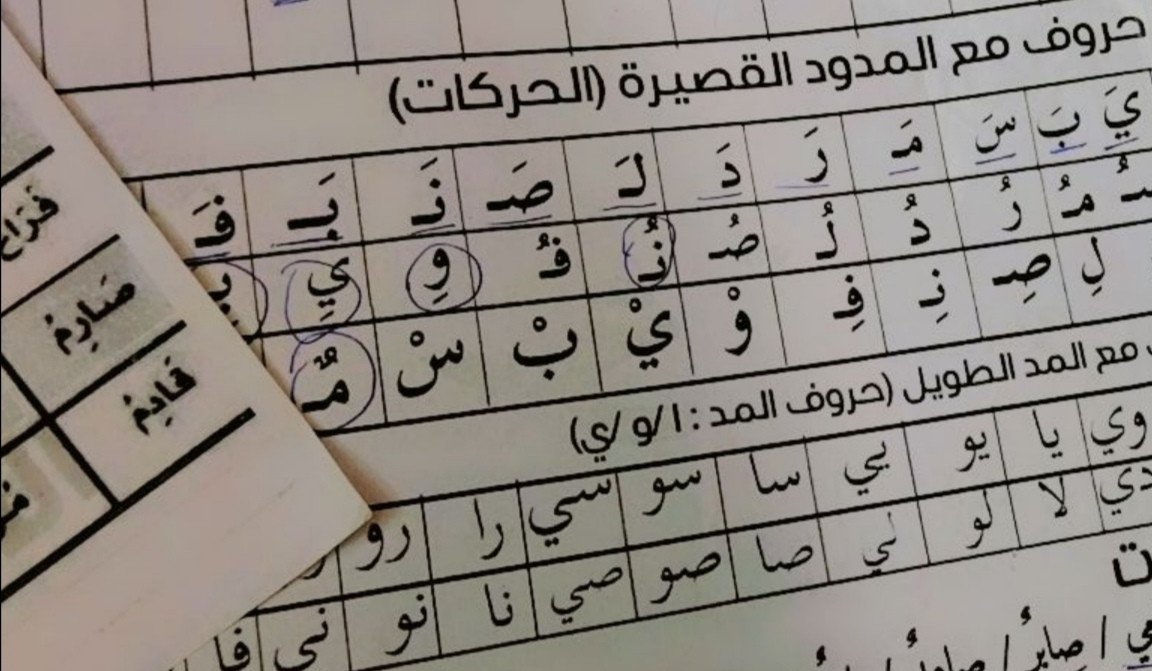 حروف مع المدود القصيرة (الحركات)
يَ بَ سَ مَـ رَ دَ لَـ صَـ نَـ بَـ فَـ
ـسُـ مُـ رُ دُ لُـ صُـ نُـ فُـ وِ يِ بِـ
لِ صِـ نِـ فِـ وْ يْ بْ سْ مٌـ
مع المد الطويل (حروف المد : ا/و/ي)
وي يا يو يي سا سو سي را رو
دي لا لو لي صا صو صي نا نو ني فا
صابرٌ /
صارِمٌ
قادِمٌ